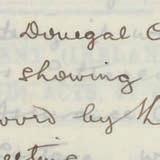 Donegal C
showing
oved by th
eeting